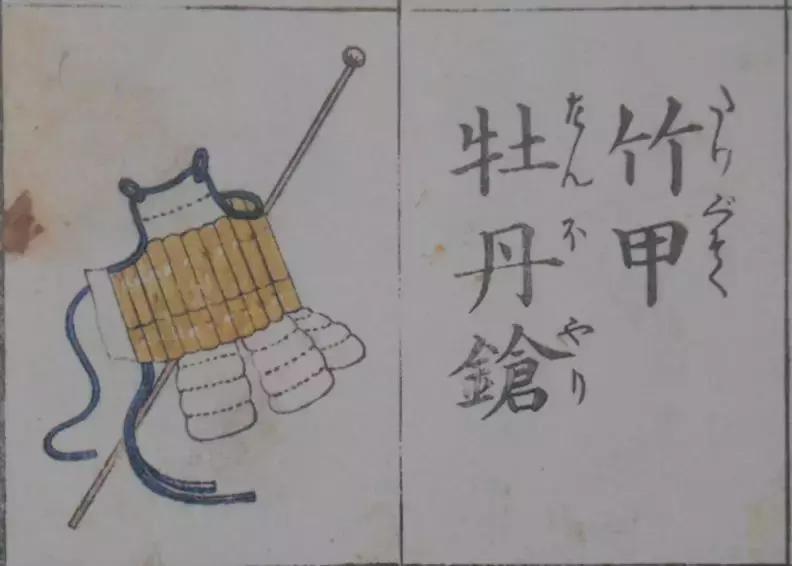 竹甲
たけぐそく
牡丹鎗
たんほやり